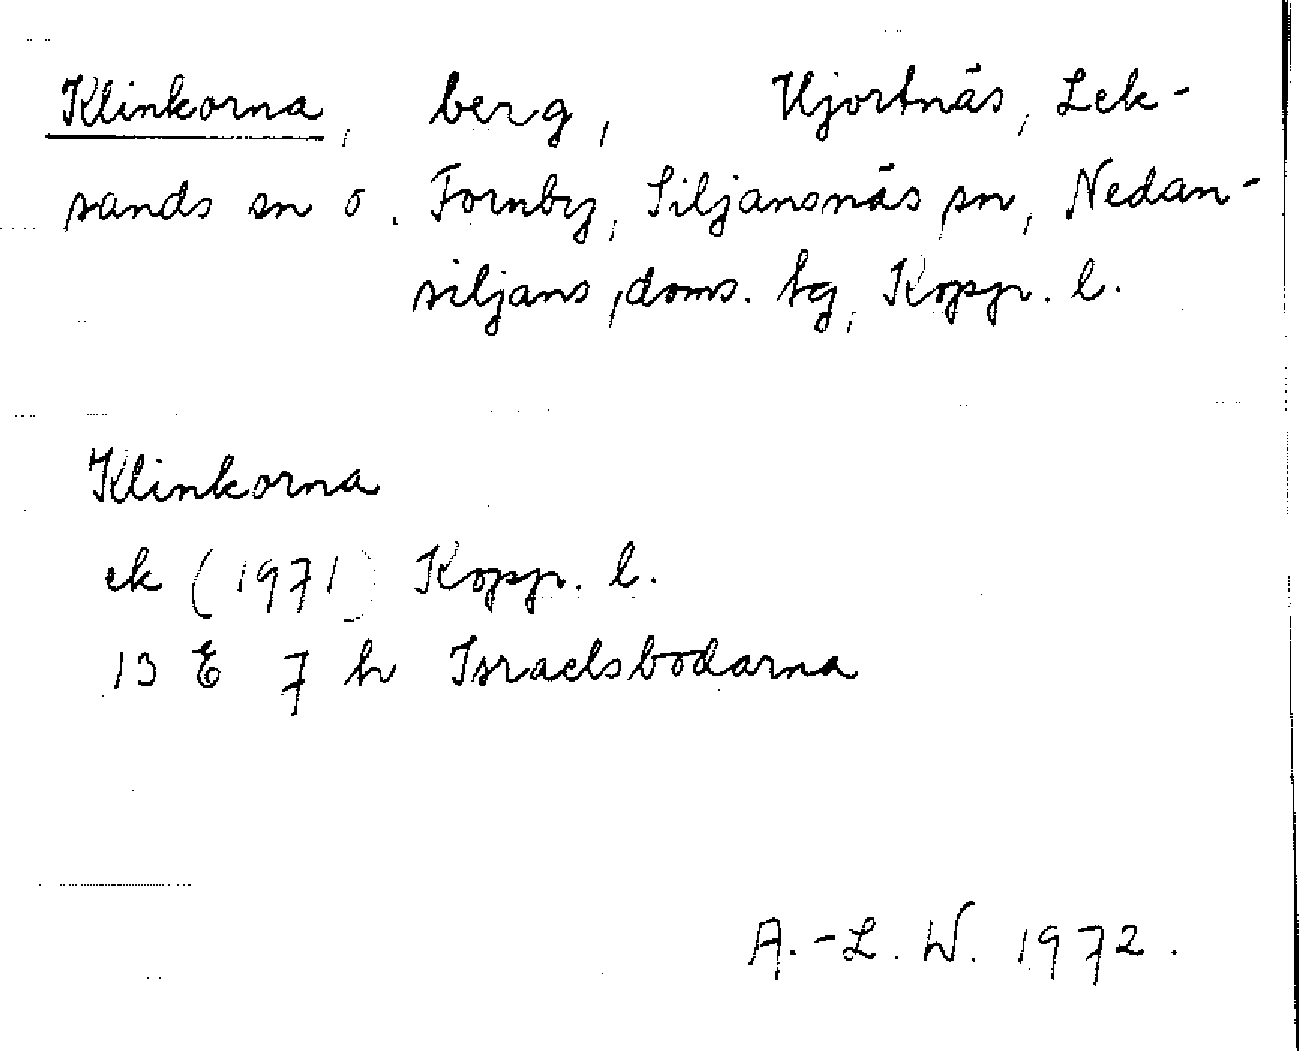 Klinkorna, berg, Hjortnäs, Lek-
sands sn o. Fornby, Siljansnäs sn, Nedan-
siljans, doms. tg, Kopp. l.
Klinkorna
ek (1971) Kopp. l.
13 E 7 h Israelsbodarna
A.-L. W. 1972.